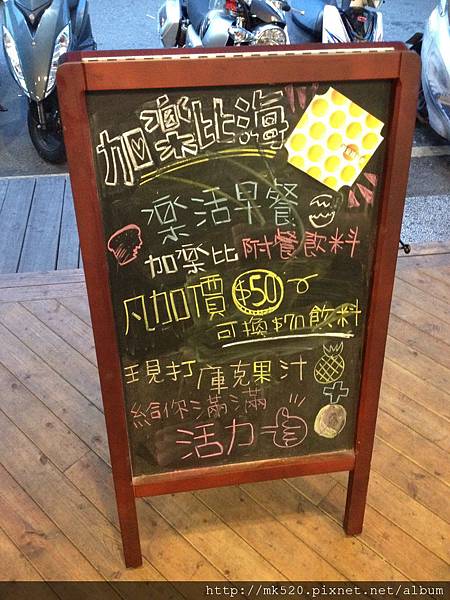 加樂比海
樂活早餐
加樂比附餐飲料
凡加價$50
可換$70飲料
現打庫克果汁
給你滿滿
活力
http://mk520.pixnet.net/album